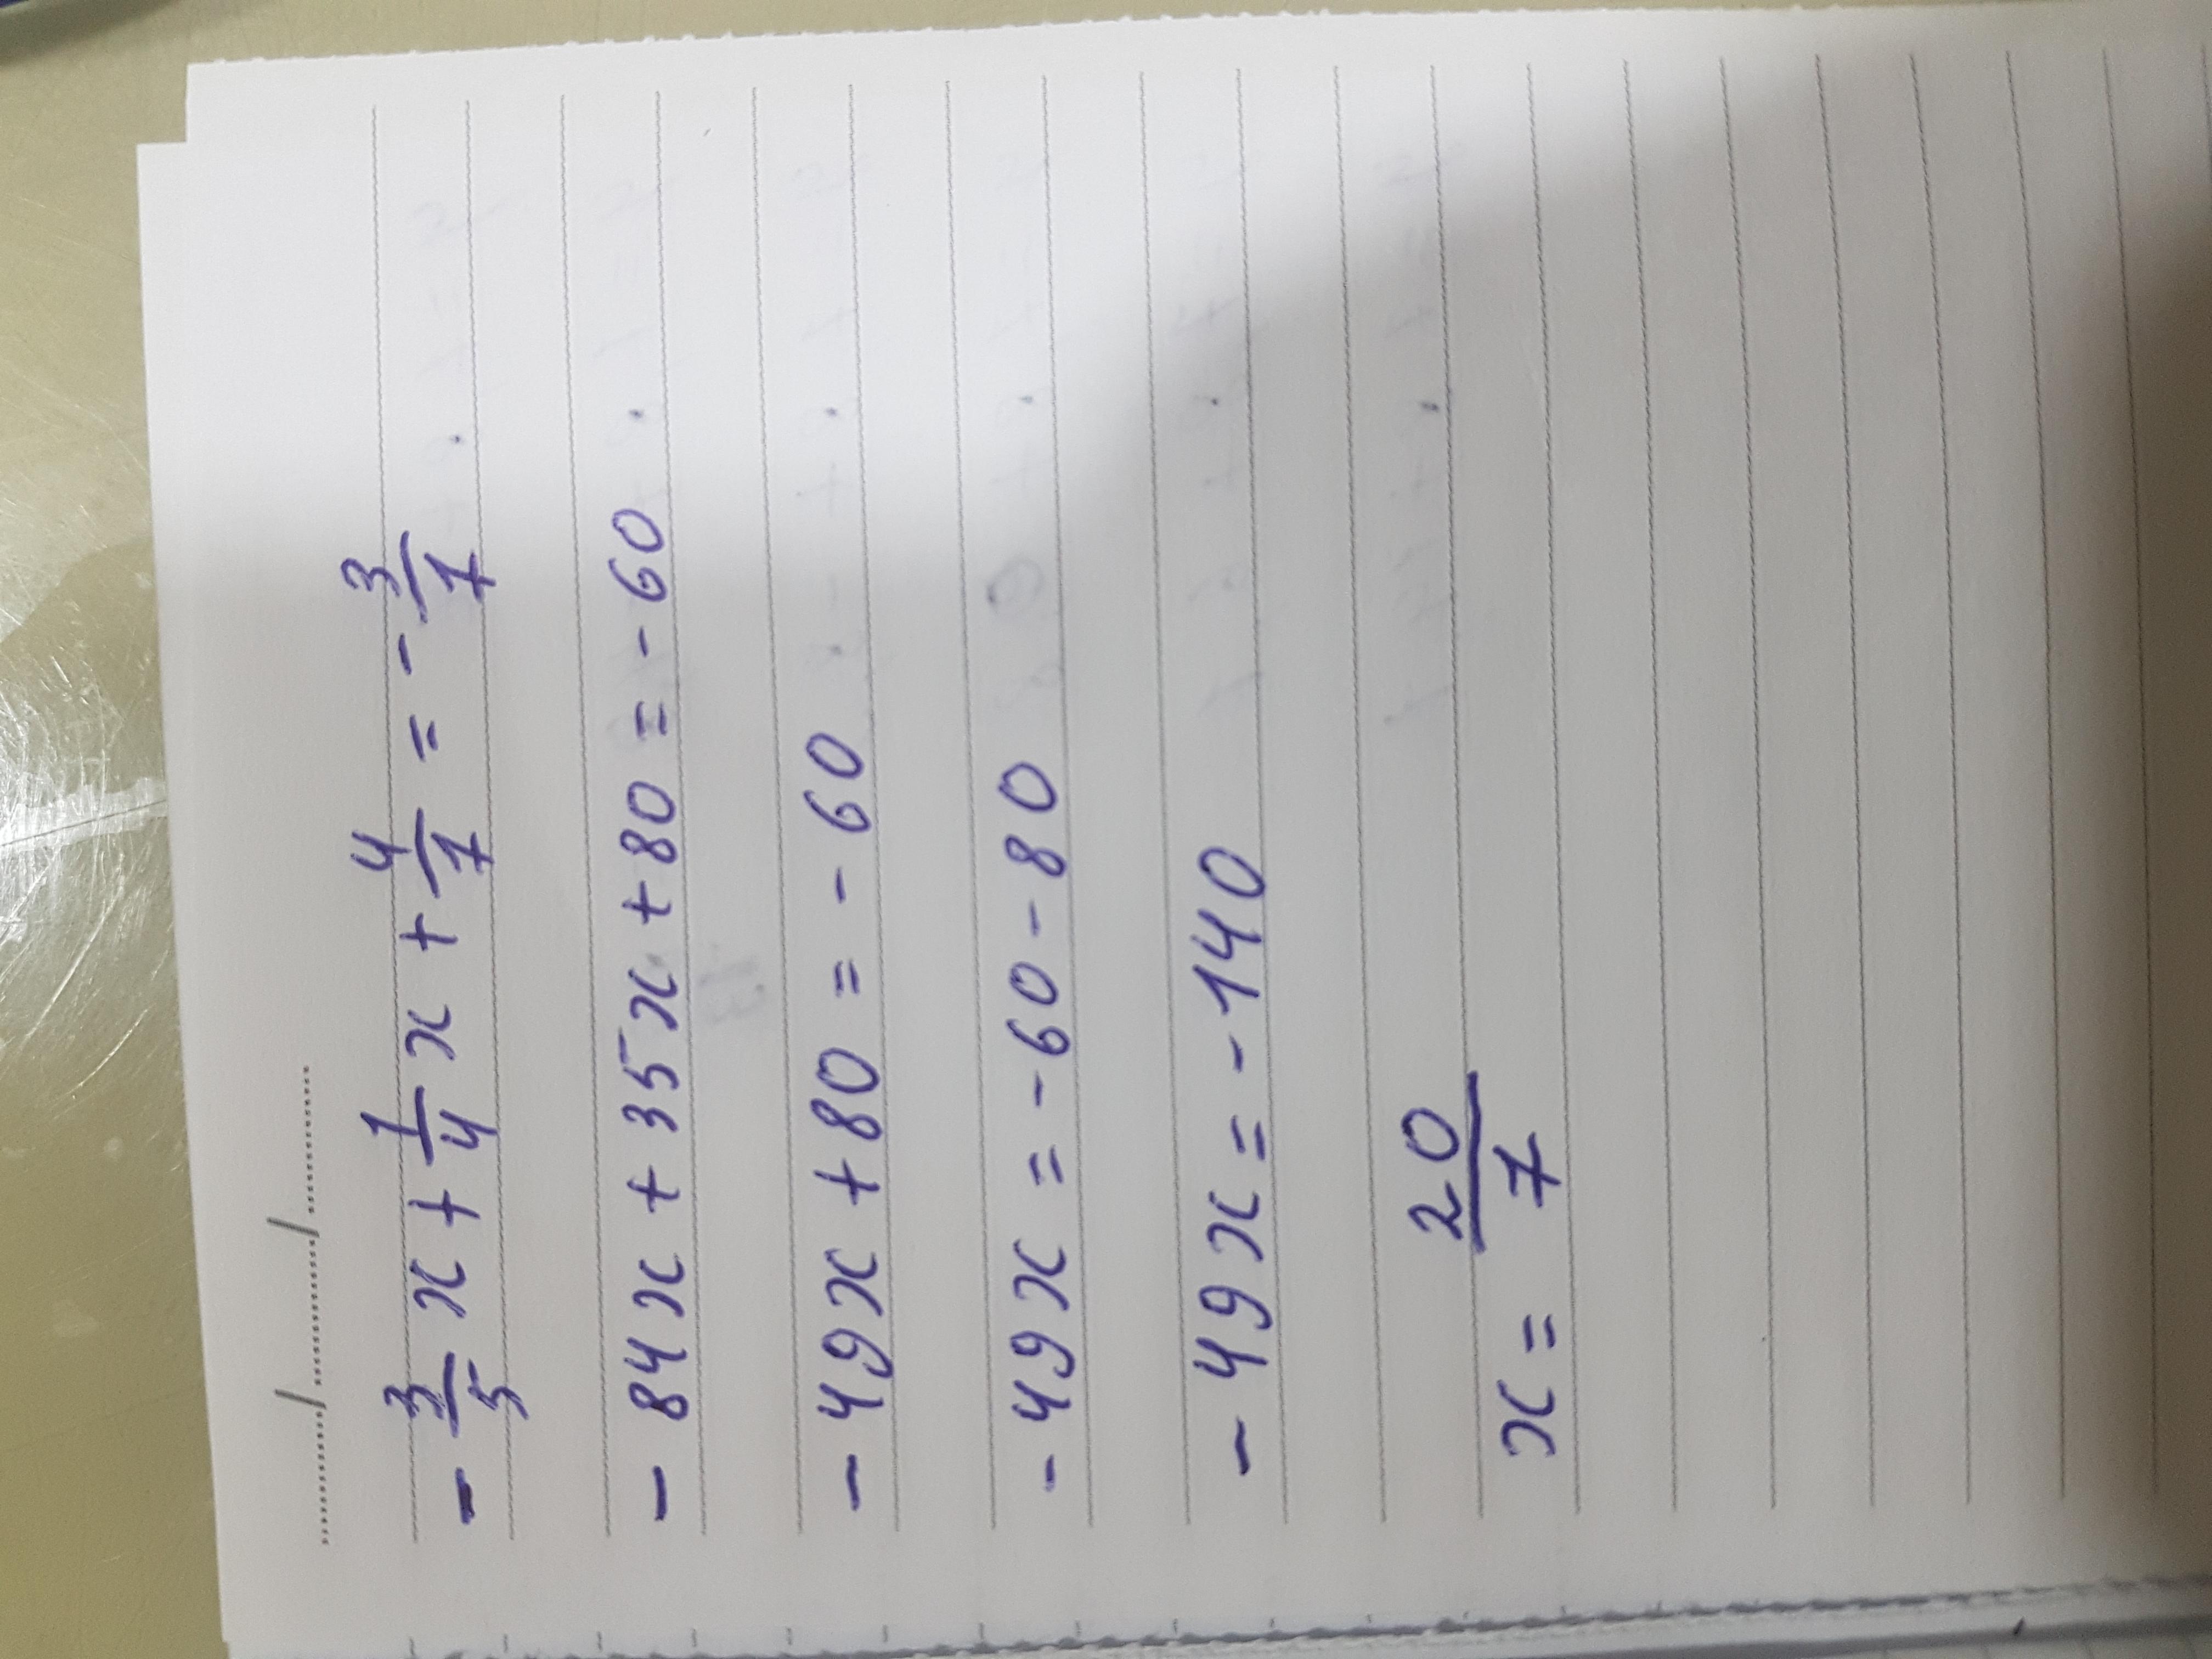 ...../...../.....
- 3/5 x + 1/4 x + 4/7 = - 3/7
- 84x + 35x + 80 = - 60
- 49x + 80 = - 60
- 49x = - 60 - 80
- 49x = - 140
x = 20/7